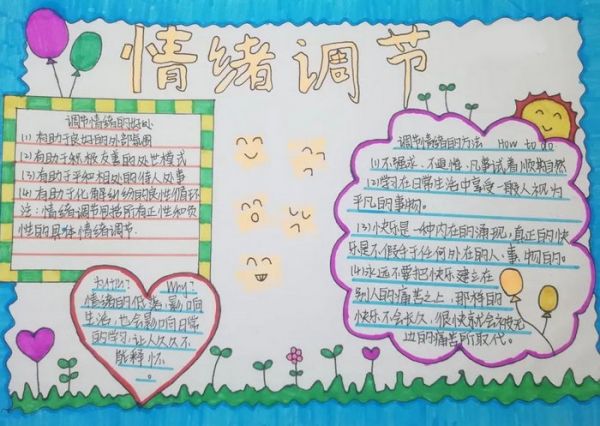 情绪调节
调节情绪的好处
(1) 有助于良好的外部氛围
(2) 有助于积极友善的处世模式
(3) 有助于平和相处的待人处事
(4) 有助于化解纠纷的良性循环
法:情绪调节包括所有正性和负
性的具体情绪调节.
Why?
情绪的低落,影响
生活,也会影响日常
的学习,让人久久不
能释怀
。
调节情绪的方法 How to do
(1)不强求、不追悔、凡事试着顺其自然
(2)学习在日常生活中享受一般人视为
平凡的事物。
(3)快乐是一种内在的涌现,真正的快
乐是不假手于任何外在的人、事、物的。
(4)永远不要把快乐建立在
别人的痛苦之上,那样的
快乐不会长久,很快就会被无
边的痛苦所取代。